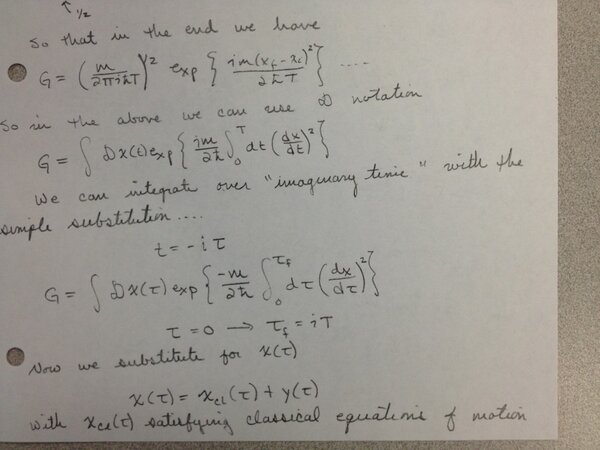 ↑ 1/2
So that in the end we have
G = (m/2πiħT)^1/2 exp { im(x_f - x_i)^2 / 2ħT } ....
So in the above we can use D notation
G = ∫ Dx(t) exp { im/2ħ ∫_0^T dt (dx/dt)^2 }
We can integrate over "imaginary time" with the
simple substitution ....
t = -iτ
G = ∫ Dx(τ) exp { -m/2ħ ∫_0^τ_f dτ (dx/dτ)^2 }
τ = 0 → τ_f = iT
Now we substitute for x(τ)
x(τ) = x_cl(τ) + y(τ)
with x_cl(τ) satisfying classical equations of motion